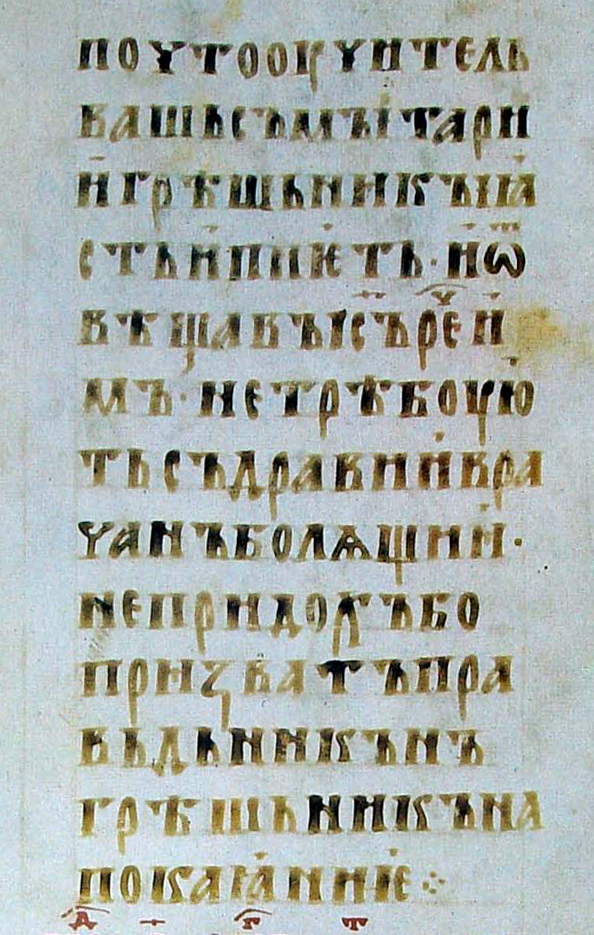 ПОУТООУУИТЕЛЬ
ВАШЬСЪМЪІТАРИ
ИГРѢШЬНИКЪІꙖ
СТЬИПИѤТЬ·ИѾ
ВѢЩАВЪІСЪРЕИ
МЪ·НЕТРѢБОУЮ
ТЬСЪДРАВИИВРА
ЧАНЪБОЛѦЩИИ·
НЕПРИДОХЪБО
ПРИЗЪВАТЪПРА
ВЬДЬНИКЪНЪ
ГРѢШЬНИКЪНА
ПОКАꙖНИѤ